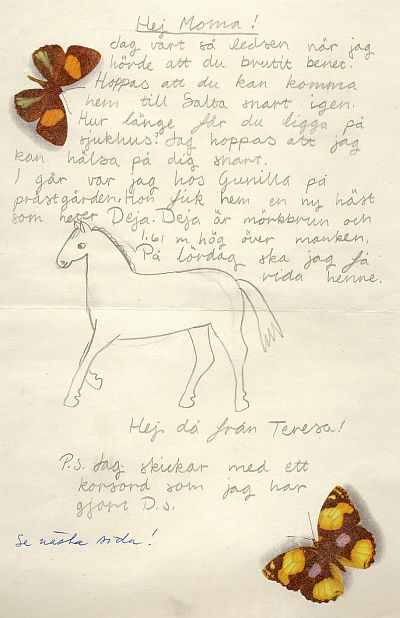 Hej Moma!
Jag vart så ledsen när jag
hörde att du brutit benet.
Hoppas att du kan komma
hem till Salta snart igen.
Hur länge får du ligga på
sjukhus? Jag hoppas att jag
kan hälsa på dig snart.
I går var jag hos Gunilla på
prästgården. Hon fick hem en ny häst
som heter Deja. Deja är mörkbrun och
1.61 m hög över manken.
På lördag ska jag få
rida henne.
Hej då från Teresa!
P.S. Jag skickar med ett
korsord som jag har
gjort D.S.
Se nästa sida!